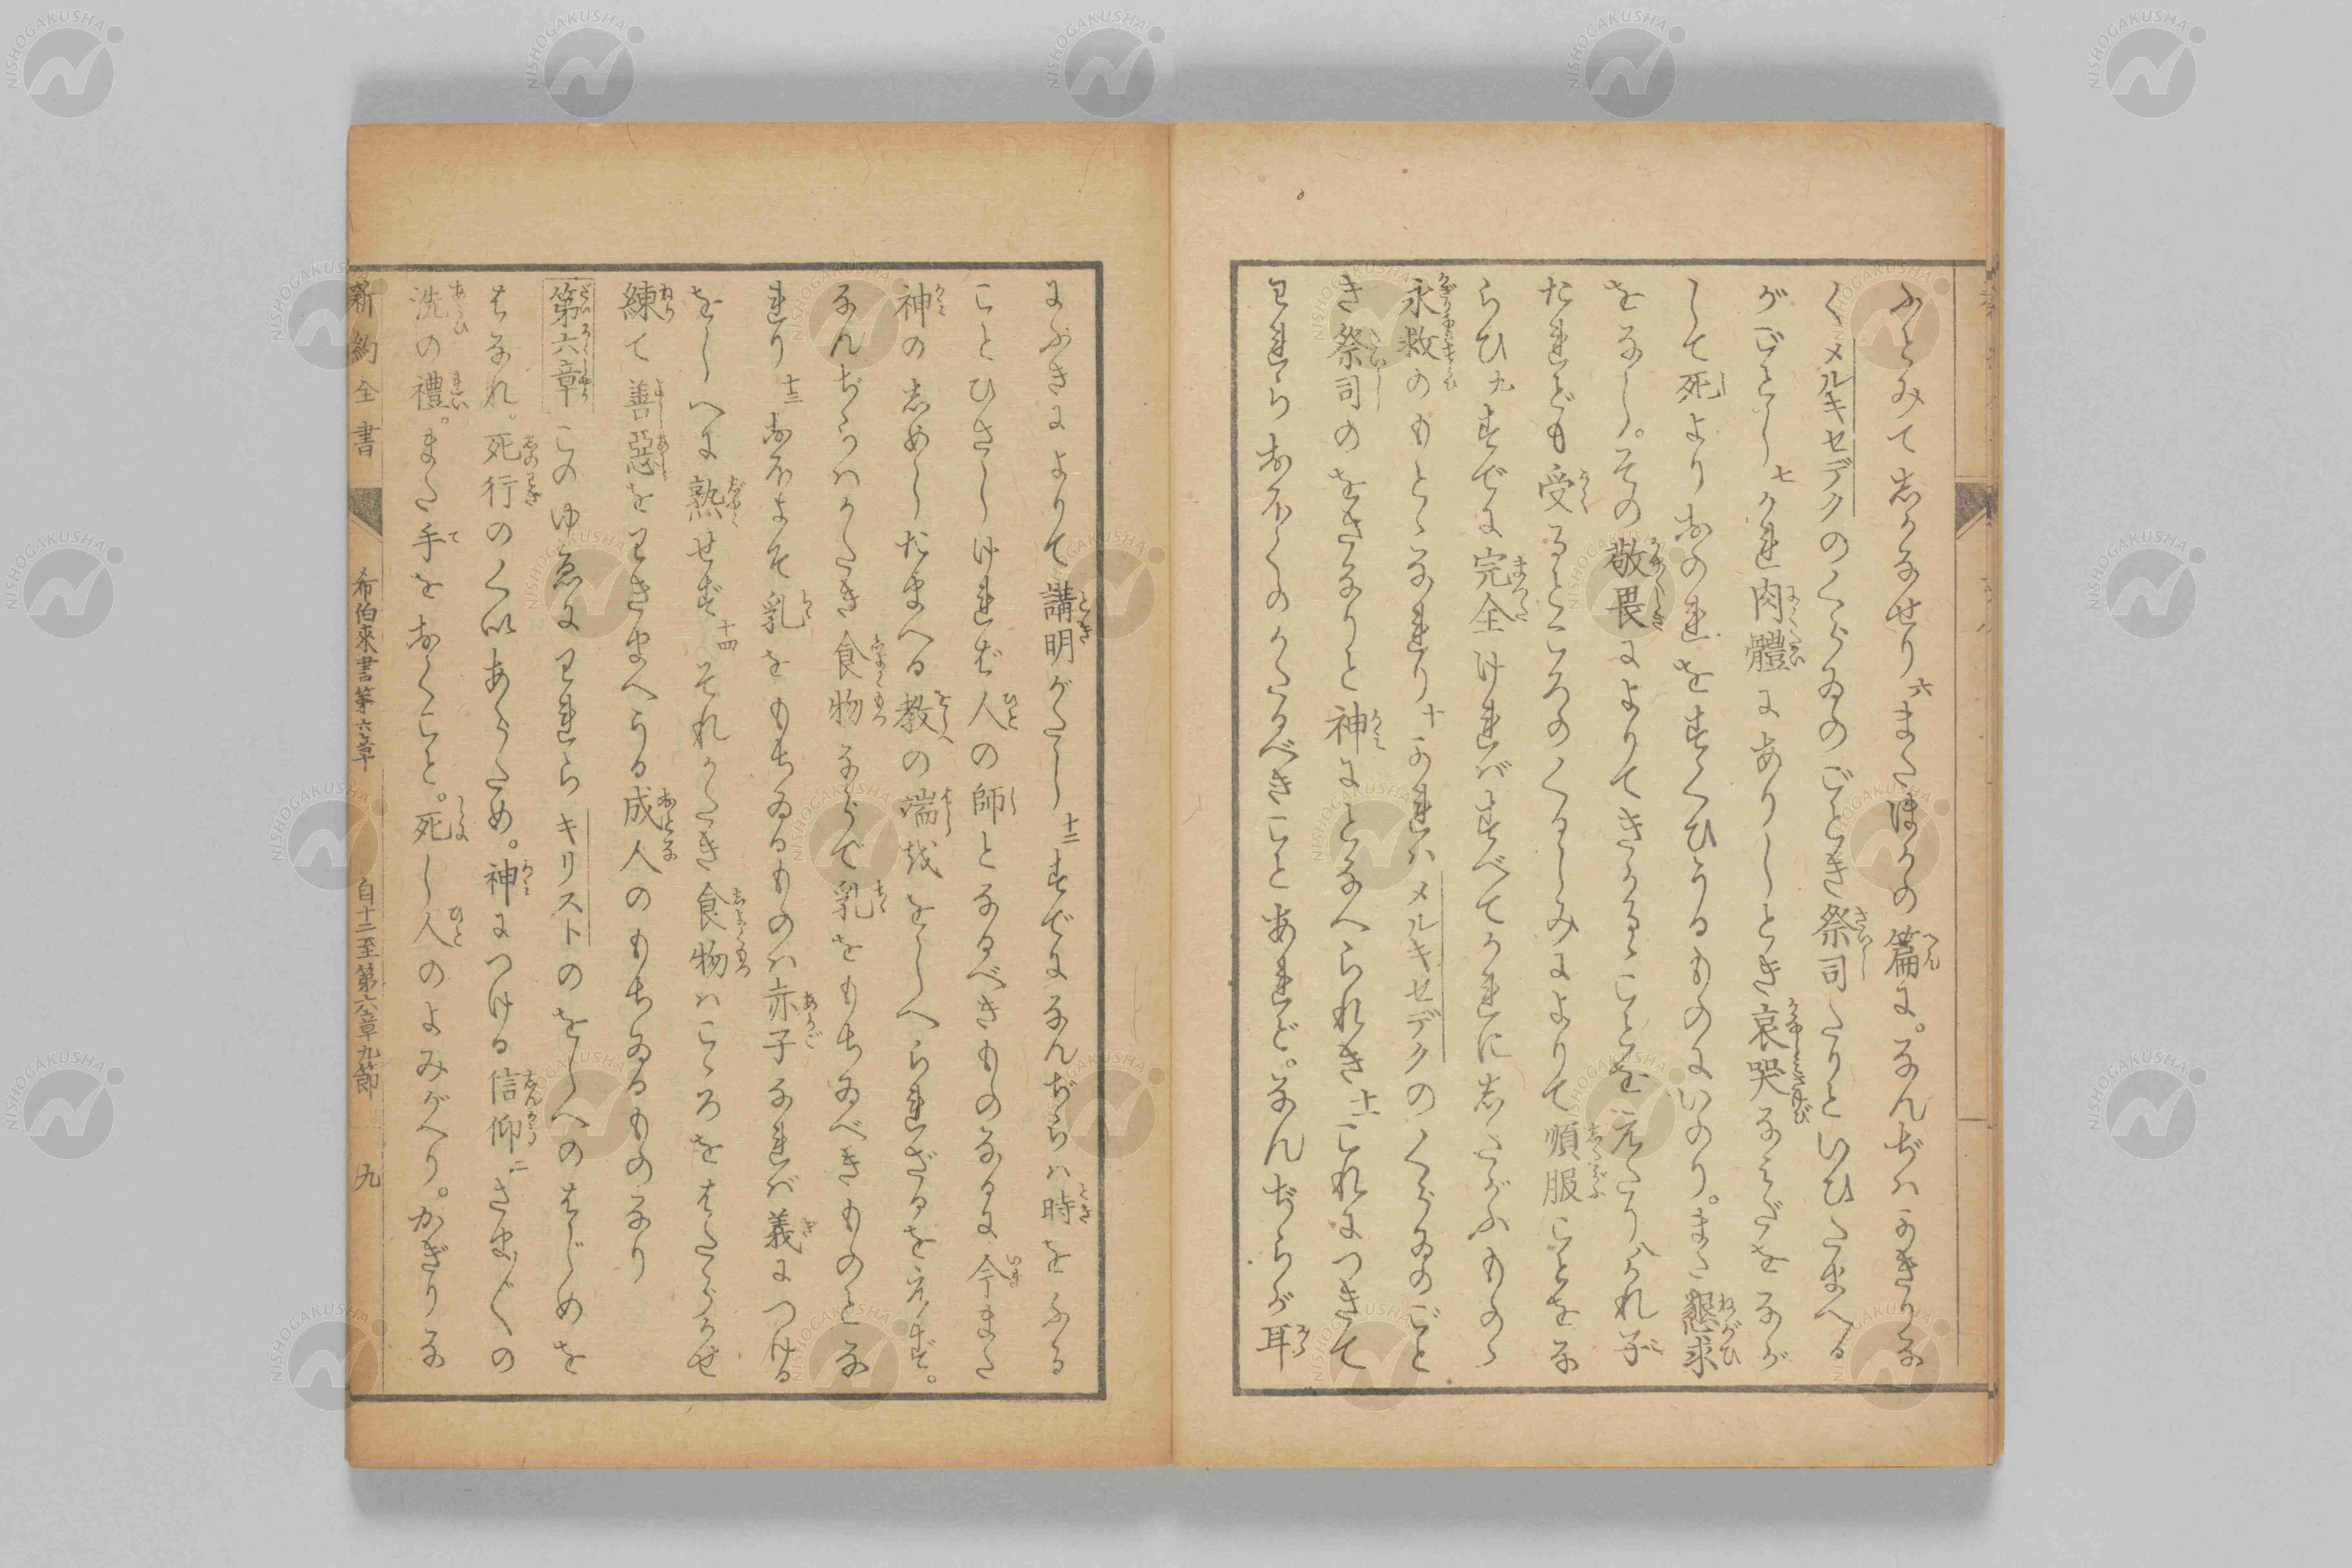 ふとみて志かなせり六またほかの篇に。なんぢハかきりな
くメルキセデクのくらゐのごとき祭司たりといひたまへる
がごとし七かれ肉體にありしとき哀哭なみだをなが
して死よりおのれをすくひうるものにいのり。また懇求
をなし。その敬畏によりてきかるゝことを元たり八かれ子
たれども受るところのくるしみによりて順服ことをな
らひ九すでに完全けれバすべてかれに志たがふものゝ
永救のもとゝなれり十かれハメルキセデクのくらゐのごと
き祭司のをさなりと神にとなへられき十一これにつきて
われらおほくのかたるべきことあれど。なんぢらが耳
にぶきによりて講明がたし十二すでになんぢらハ時をふる
ことひさしけれバ人の師となるべきものなるに今また
神の志めしたまへる教の端越をしへられざるを元ず。
なんぢらハかたき食物ならで乳をもちゐべきものとな
れり十三おほよそ乳をもちゐるものハ赤子なれバ義につける
をしへに熟せず十四それかたき食物ハこゝろをはたらかせ
練て善惡をわきまへうる成人のもちゐるものなり
第六章このゆゑにわれらキリストのをしへのはじめを
はなれ。死行のくいあらため。神につける信仰二さま〴〵の
洗の禮。また手をおくこと。死し人のよみがへり。かぎりな
新約全書 希伯來書第六章 自十二至第六章九節 九